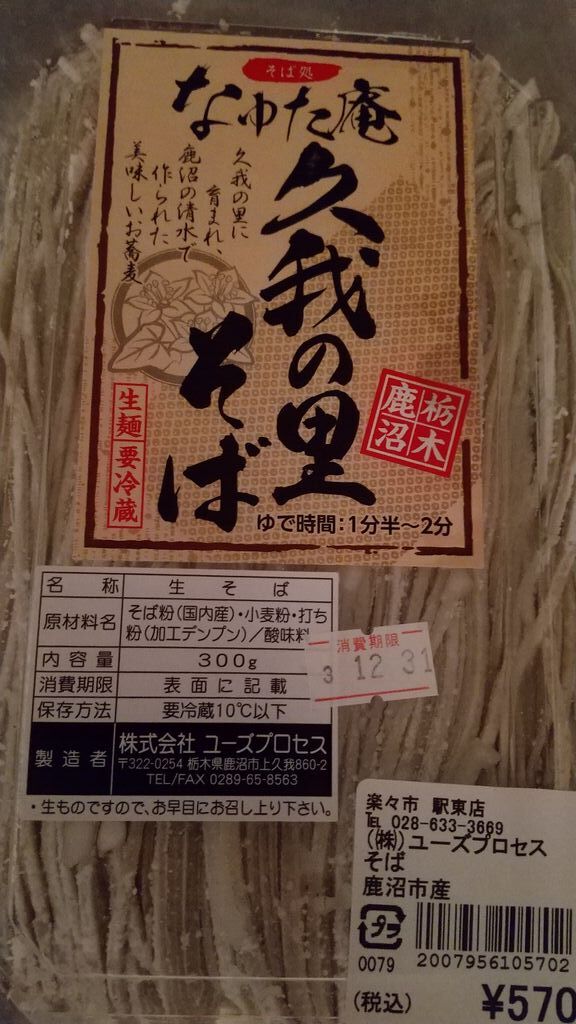 そば処
なゆた庵
久我の里
そば
久我の里に
育まれ、
鹿沼の清水で
作られた
美味しいお蕎麦
栃木
鹿沼
生麺 要冷蔵
ゆで時間:1分半～2分
名称 生そば
原材料名 そば粉(国内産)・小麦粉・打ち
粉(加工デンプン)／酸味料
内容量 300g
消費期限 表面に記載
保存方法 要冷蔵10℃以下
製造者 株式会社 ユーズプロセス
〒322-0254 栃木県鹿沼市上久我860-2
TEL/FAX 0289-65-8563
・生ものですので、お早目にお召し上り下さい。
消費期限
3 12 31
楽々市 駅東店
℡ 028-633-3669
(㈱)ユーズプロセス
そば
鹿沼市産
プラ
0079 2007956105702
(税込) ¥570